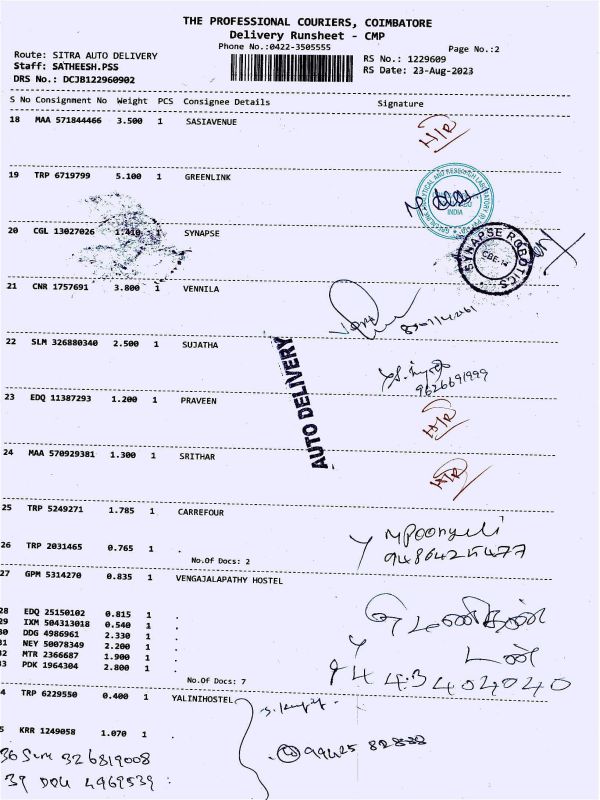 THE PROFESSIONAL COURIERS, COIMBATORE
Delivery Runsheet - CMP
Phone No.:0422-3505555
Page No.:2
Route: SITRA AUTO DELIVERY
Staff: SATHEESH.PSS
DRS No.: DCJB122960902
RS No.: 1229609
RS Date: 23-Aug-2023
S No Consignment No Weight PCS Consignee Details Signature
18 MAA 571844466 3.500 1 SASIAVENUE
H/R
19 TRP 6719799 5.100 1 GREENLINK
INDIA
20 CGL 13027026 1.410 1 SYNAPSE
SYNAPSE ROBOTICS
CBE-14
21 CNR 1757691 3.800 1 VENNILA
22 SLM 326880340 2.500 1 SUJATHA
9626691999
AUTO DELIVERY
23 EDQ 11387293 1.200 1 PRAVEEN
H/R
24 MAA 570929381 1.300 1 SRITHAR
H/R
25 TRP 5249271 1.785 1 CARREFOUR
26 TRP 2031465 0.765 1 .
No.Of Docs: 2
9486425477
27 GPM 5314270 0.835 1 VENGAJALAPATHY HOSTEL
28 EDQ 25150102 0.815 1 .
29 IXM 504313018 0.540 1 .
30 DDG 4986961 2.330 1 .
31 NEY 50078349 2.200 1 .
32 MTR 2366687 1.900 1 .
33 PDK 1964304 2.800 1 .
No.Of Docs: 7
9443404040
4 TRP 6229550 0.400 1 YALINIHOSTEL
5 KRR 1249058 1.070 1 .
99425 82888
36 SLM 326819008
37 DDG 4969539